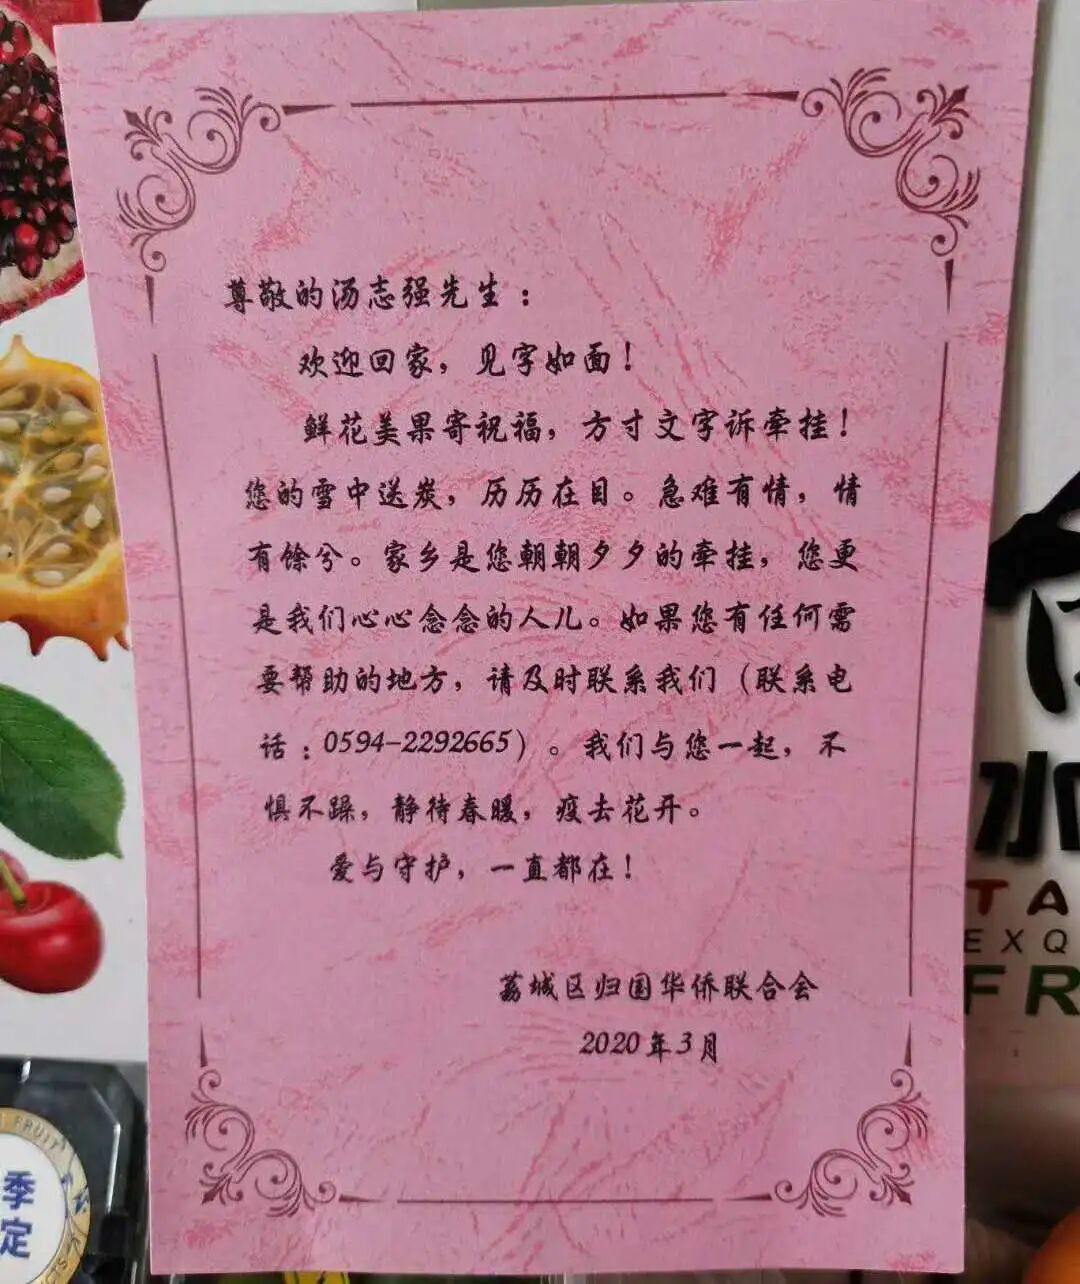 尊敬的汤志强先生：
欢迎回家，见字如面！
鲜花美果寄祝福，方寸文字诉牵挂！
您的雪中送炭，历历在目。急难有情，情
有馀兮。家乡是您朝朝夕夕的牵挂，您更
是我们心心念念的人儿。如果您有任何需
要帮助的地方，请及时联系我们（联系电
话：0594-2292665）。我们与您一起，不
惧不躁，静待春暖，疫去花开。
爱与守护，一直都在！
荔城区归国华侨联合会
2020年3月
TA
EXQ
FR
FRUIT
季
定